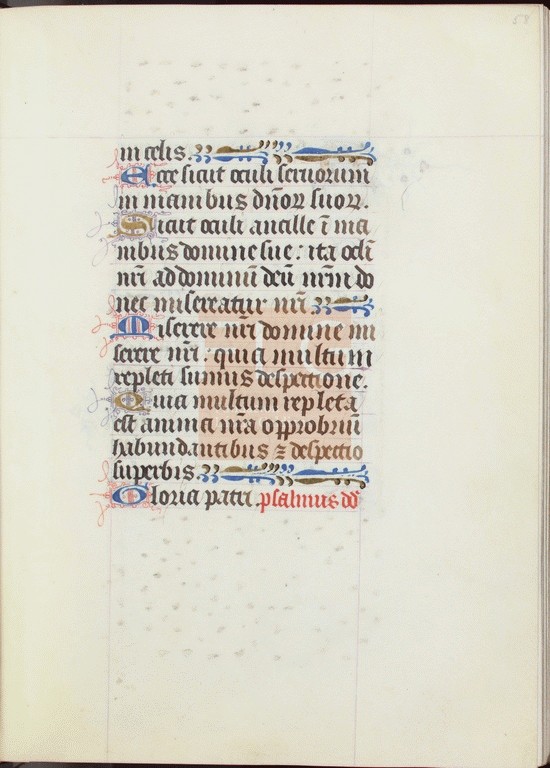 58
in celis.
Ecce sicut oculi seruorum
in manibus dñoꝝ suoꝝ.
Sicut oculi ancille ĩ ma
nibus domine sue: ita ocl̃i
nr̃i ad dominũ deũ nr̃m do
nec misereatur nr̃i
Miserere nr̃i domine mi
serere nr̃i: quia multum
repleti sumus despectione.
Quia multum repleta
est anima nr̃a opprobriũ
habundantibus ⁊ despectio
superbis.
Gloria patri. psalmus dd̃